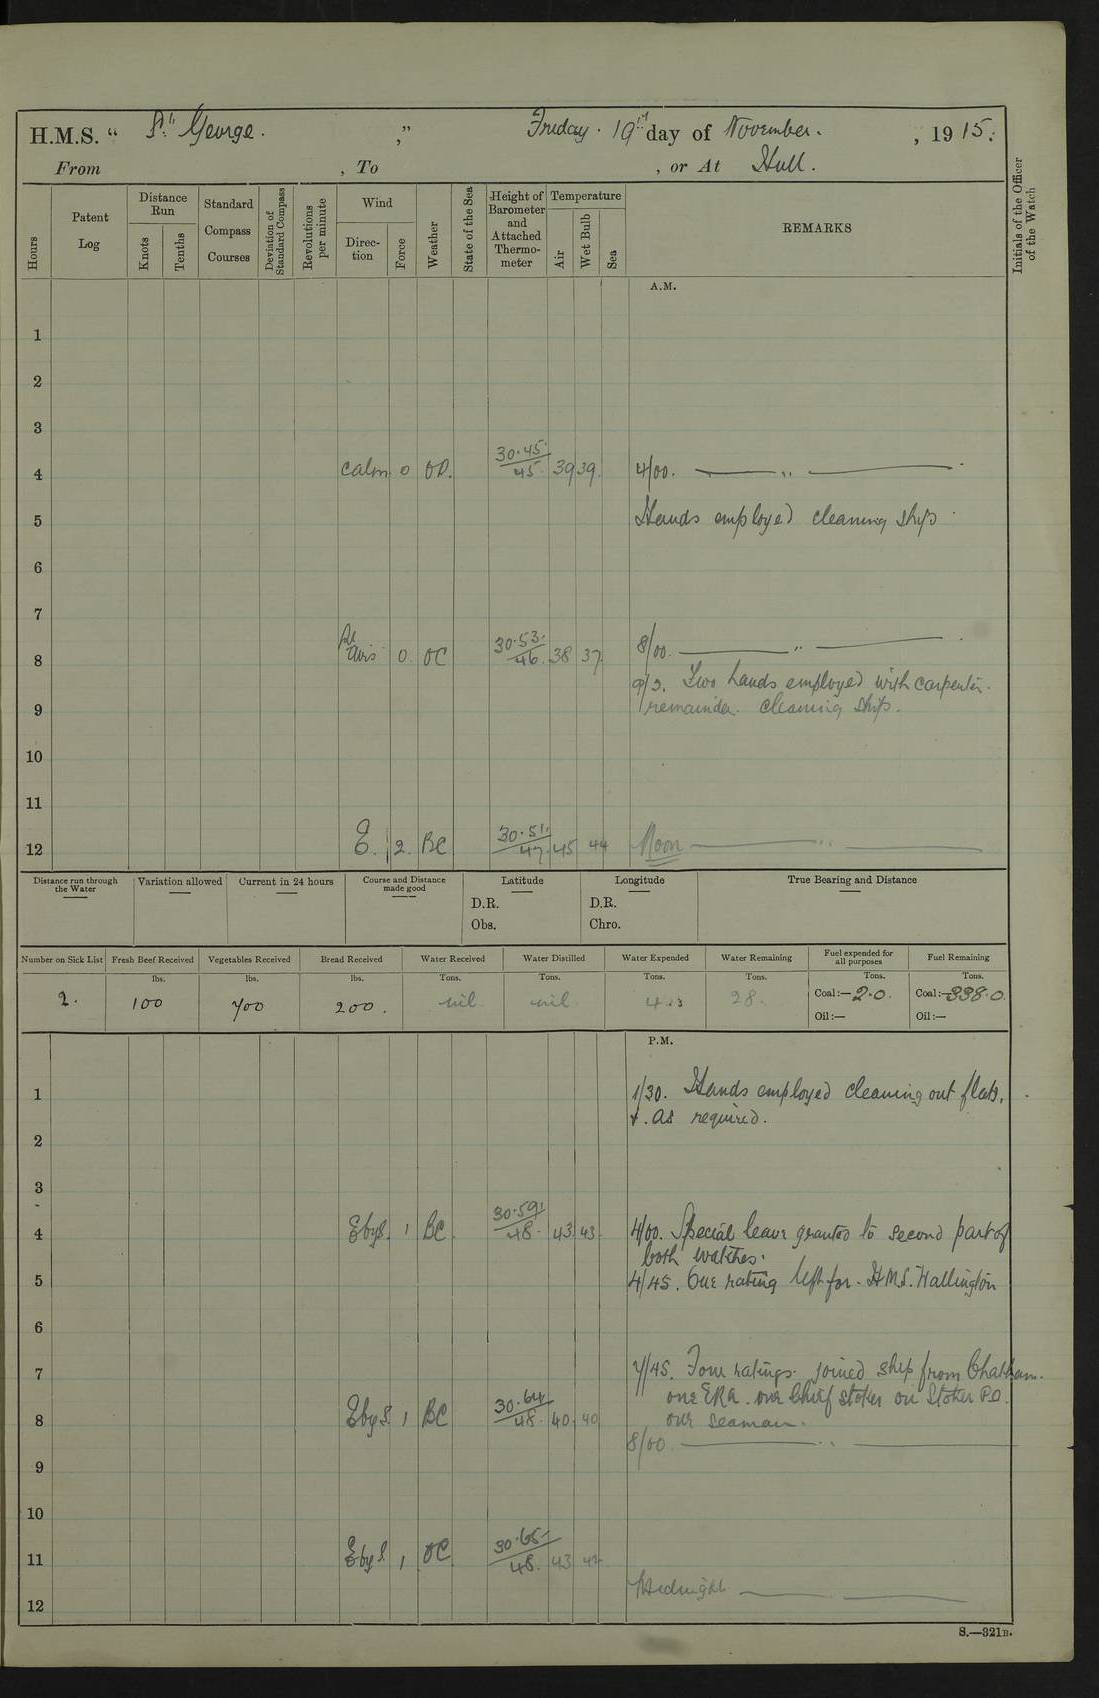 H.M.S. “ St George. ” Friday. 19th day of November. , 1915.
From , To , or At Hull.
Hours
Patent Log
Distance Run
Knots
Tenths
Standard Compass Courses
Deviation of Standard Compass
Revolutions per minute
Wind
Direction
Force
Weather
State of the Sea
Height of Barometer and Attached Thermometer
Temperature
Air
Wet Bulb
Sea
REMARKS
Initials of the Officer of the Watch
A.M.
1
2
3
4 Calm 0 OD. 30.45 45 39 39 4/00. — „ —
5 Hands employed cleaning ship
6
7
8 airs 0 OC 30.53 46 38 37 8/00 — „ —
Two hands employed with carpenter.
9 remainder cleaning ship.
10
11
12 E. 2 BC 30.51 47 45 44 Noon — „ —
Distance run through the Water
Variation allowed
Current in 24 hours
Course and Distance made good
Latitude
D.R.
Obs.
Longitude
D.R.
Chro.
True Bearing and Distance
Number on Sick List Fresh Beef Received Vegetables Received Bread Received Water Received Water Distilled Water Expended Water Remaining Fuel expended for all purposes Fuel Remaining
lbs. lbs. lbs. Tons. Tons. Tons. Tons. Tons. Tons.
2. 100 700 200. nil nil 28. Coal:—2.0. Coal:—338.0.
Oil:— Oil:—
P.M.
1 1/30. Hands employed cleaning out flats,
+. as required.
2
3
4 EbyS. 1 BC 30.59 48 43 43 4/00. Special leave granted to second part of
both watches.
5 4/45. One rating left for H.M.S. Wallington
6
7 7/45. Four ratings joined ship from Chatham.
one ERA. one Chief stoker one Stoker PO.
8 EbyS. 1 BC 30.64 48 40 40 one seaman.
8/00 — „ —
9
10
11 EbyS. 1 OC 30.65 48. 43 42
Midnight —
12
S.—321B.